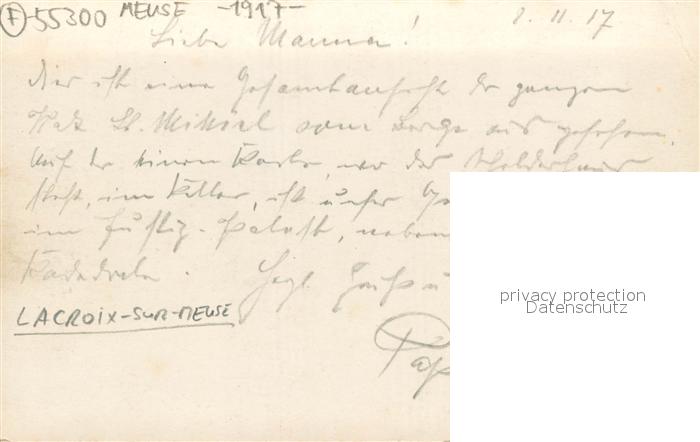 F-55300 MEUSE -1917-
8. 11. 17
Liebe Mamma!
Hier ist eine Gesamtansicht der ganzen
St. Mihiel vom Berge aus gesehen.
Auf der einen Karte, wo das Schilderhaus
steht, im Keller, ist unser
im Justiz-Palast, neben
Herzl. Gruß u
LACROIX-SUR-MEUSE
Pap
privacy protection
Datenschutz